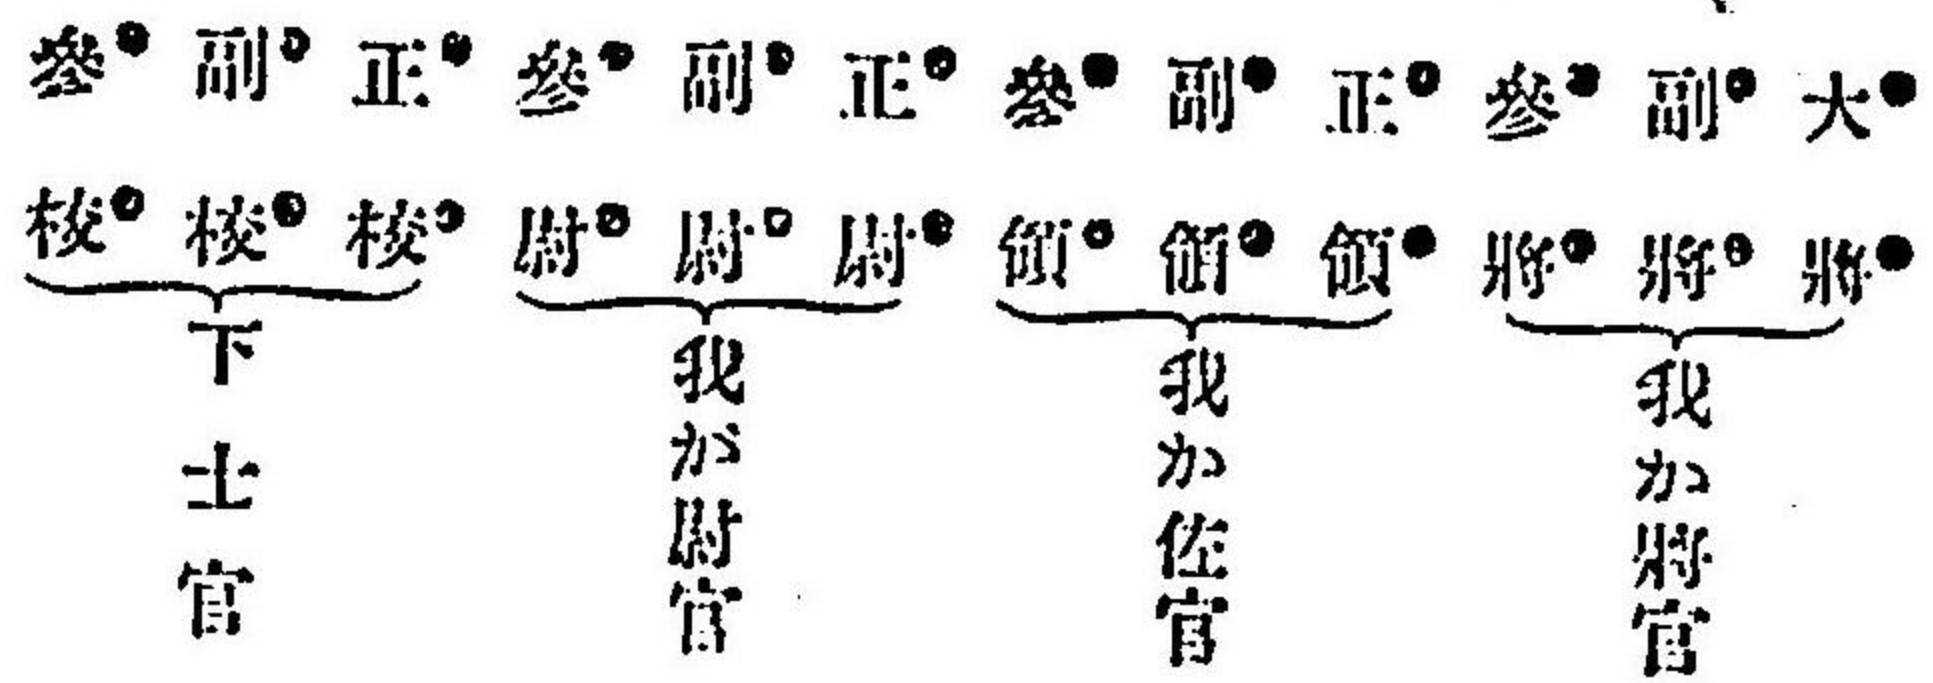 大將
副將
參將
我か將官
正領
副領
參領
我か佐官
正尉
副尉
參尉
我が尉官
正校
副校
參校
下士官